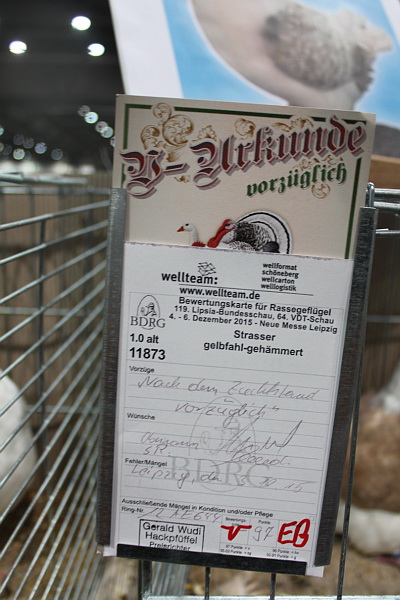 V-Urkunde
vorzüglich
wellteam:
wellformat
schöneberg
wellcarton
welllogistik
www.wellteam.de
Bewertungskarte für Rassegeflügel
119. Lipsia-Bundesschau, 64. VDT-Schau
4. - 6. Dezember 2015 - Neue Messe Leipzig
BDRG
Strasser
1.0 alt
gelbfahl-gehämmert
11873
Vorzüge
Nach dem Zuchtstand
"vorzüglich"
Wünsche
SR.
Fehler/Mängel
BDRG
Leipzig, den
Ausschließende Mängel in Kondition und/oder Pflege
Ring-Nr.
Gerald Wudi
Hackpfüffel
Preisrichter
Bewertung
Punkte
v 97 EB